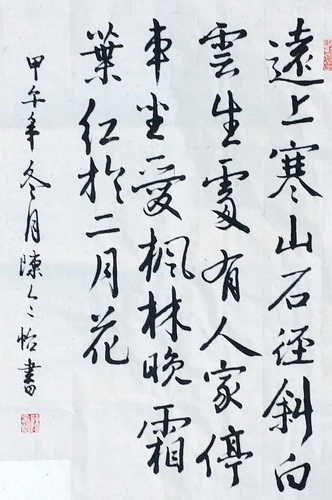 遠上寒山石徑斜白
雲生處有人家停
車坐愛楓林晚霜
葉紅於二月花
甲午年冬月陳令怡書